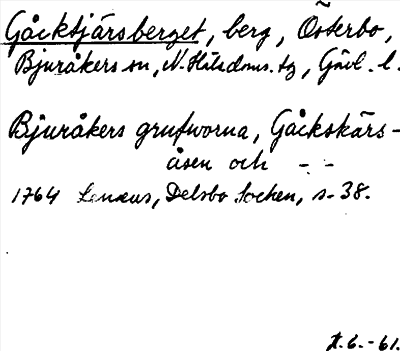 Gåcktjärsberget, berg, Österbo,
Bjuråkers sn, N. Hälsdms. tg, Gävl. l.
Bjuråkers grufworna, Gåckskärs-
åsen och - -
1764 Lenæus, Delsbo Socken, s. 38.